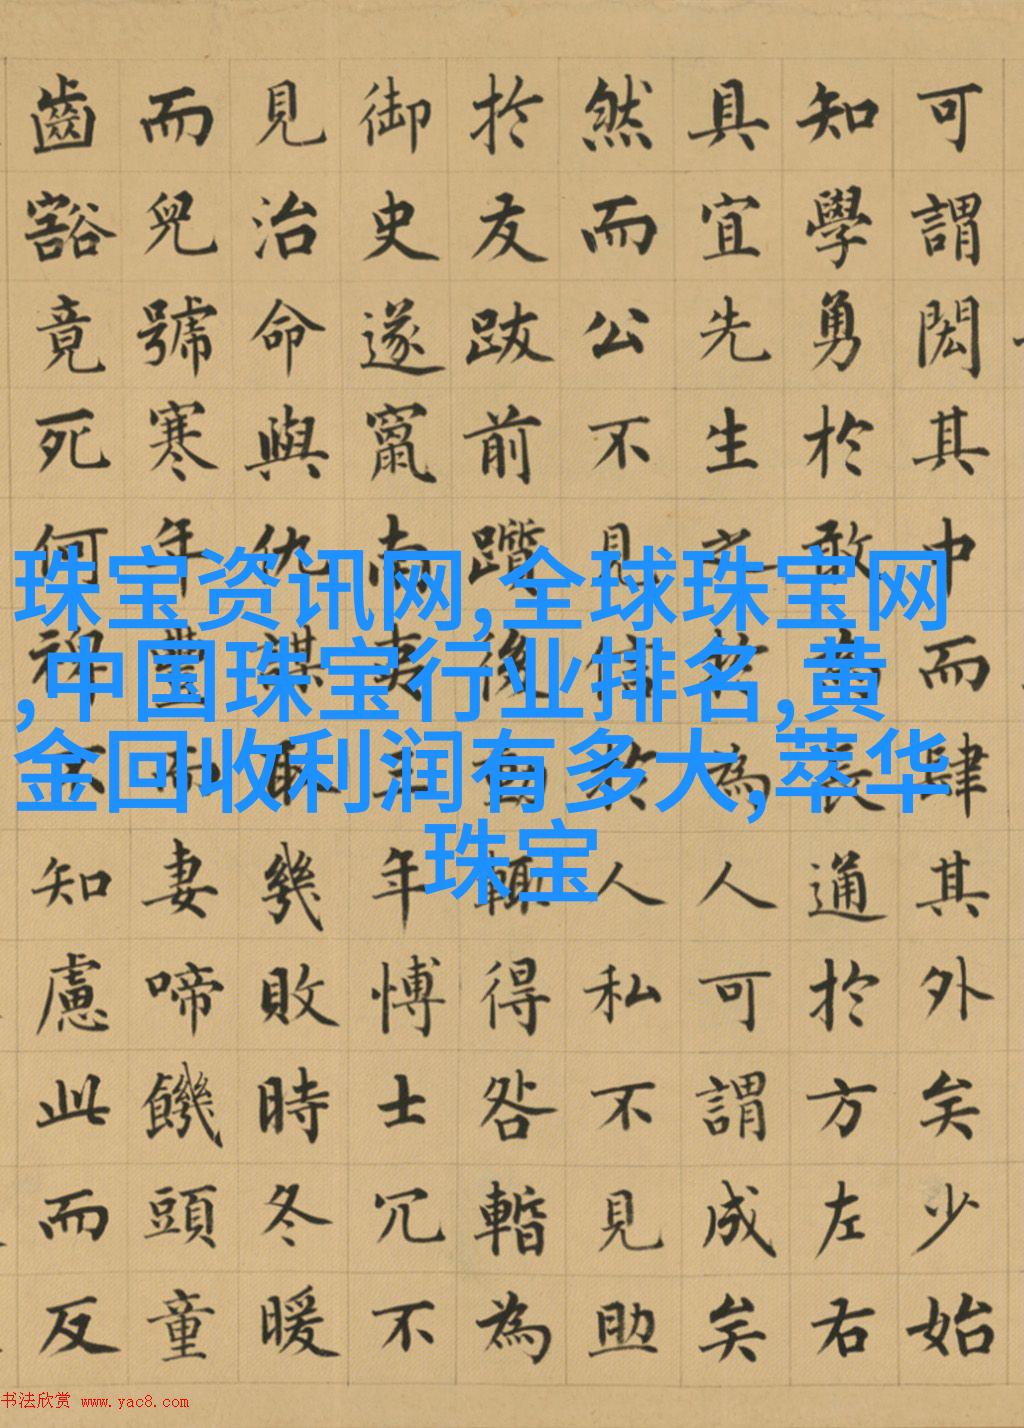 可謂閎其中而肆其外矣少始
知學勇於敢為長通於方左右
具宜先生之於為人可謂成矣
然而公不見信於人私不見助
於友跋前躓後動輒得咎暫為
御史遂竄南夷三年愽士冗不
見治命與仇謀取幾敗時冬暖
而兒號寒年豐而妻啼饑頭童
齒豁竟死何裨不知慮此而反
珠宝资讯网,全球珠宝网
,中国珠宝行业排名,黄
金回收利润有多大,萃华
珠宝
书法欣赏 www.yac8.com